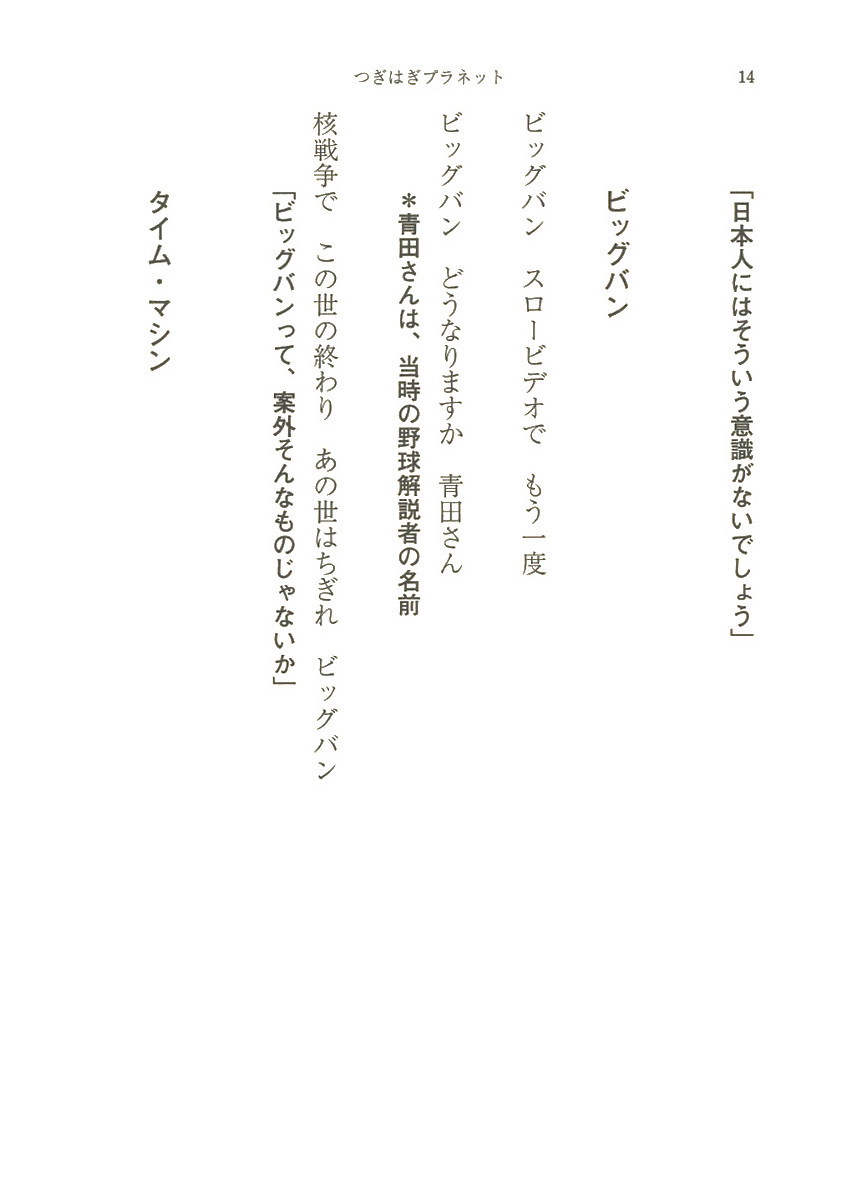 つぎはぎプラネット
14
「日本人にはそういう意識がないでしょう」
ビッグバン
ビッグバン　スロービデオで　もう一度
ビッグバン　どうなりますか　青田さん
＊青田さんは、当時の野球解説者の名前
核戦争で　この世の終わり　あの世はちぎれ　ビッグバン
「ビッグバンって、案外そんなものじゃないか」
タイム・マシン